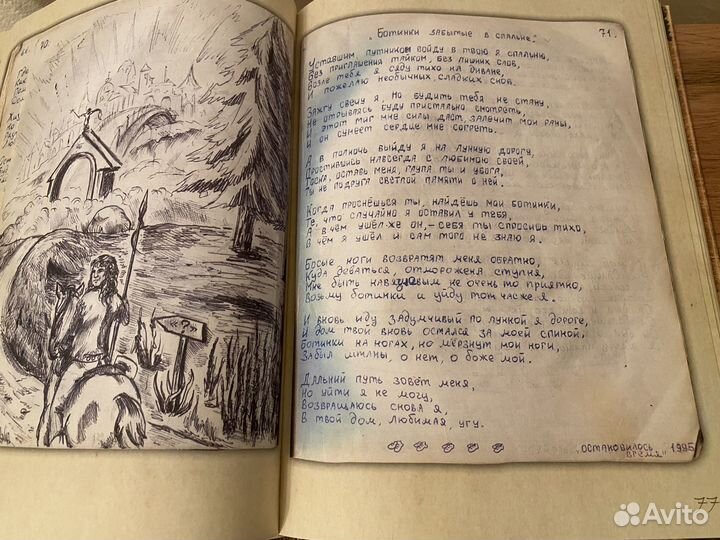 70.
«?»
71.
„Ботинки забытые в спальне."
Уставшим путником войду в твою я спальню,
Без приглашения тайком, без лишних слов,
Возле тебя я сяду тихо на диване,
И пожелаю необычных, сладких снов.
Зажгу свечу я, но будить тебя не стану,
Не отрываясь буду пристально смотреть,
И этот миг мне силы даст, залечит мои раны,
И он сумеет сердце мне согреть.
А в полночь выйду я на лунную дорогу,
Простившись навсегда с любимою своей,
Тоска, оставь меня, глупа ты и убога,
Ты не подруга светлой памяти о ней.
Когда проснёшься ты, найдёшь мои ботинки,
Те, что случайно я оставил у тебя,
А в чём ушёл же он, – себя ты спросишь тихо,
В чём я ушёл и сам того не знаю я.
Босые ноги возвратят меня обратно,
Куда деваться, отморожена ступня,
Мне быть навязчивым не очень то приятно,
Возьму ботинки и уйду тот час же я.
И вновь иду задумчивый по лунной я дороге,
И дом твой вновь остался за моей спиной,
Ботинки на ногах, но мёрзнут мои ноги,
Забыл штаны, о нет, о боже мой.
Дальний путь зовёт меня,
Но уйти я не могу,
Возвращаюсь снова я,
В твой дом, любимая, угу.
„Остановилось
время" 1995
77
Avito